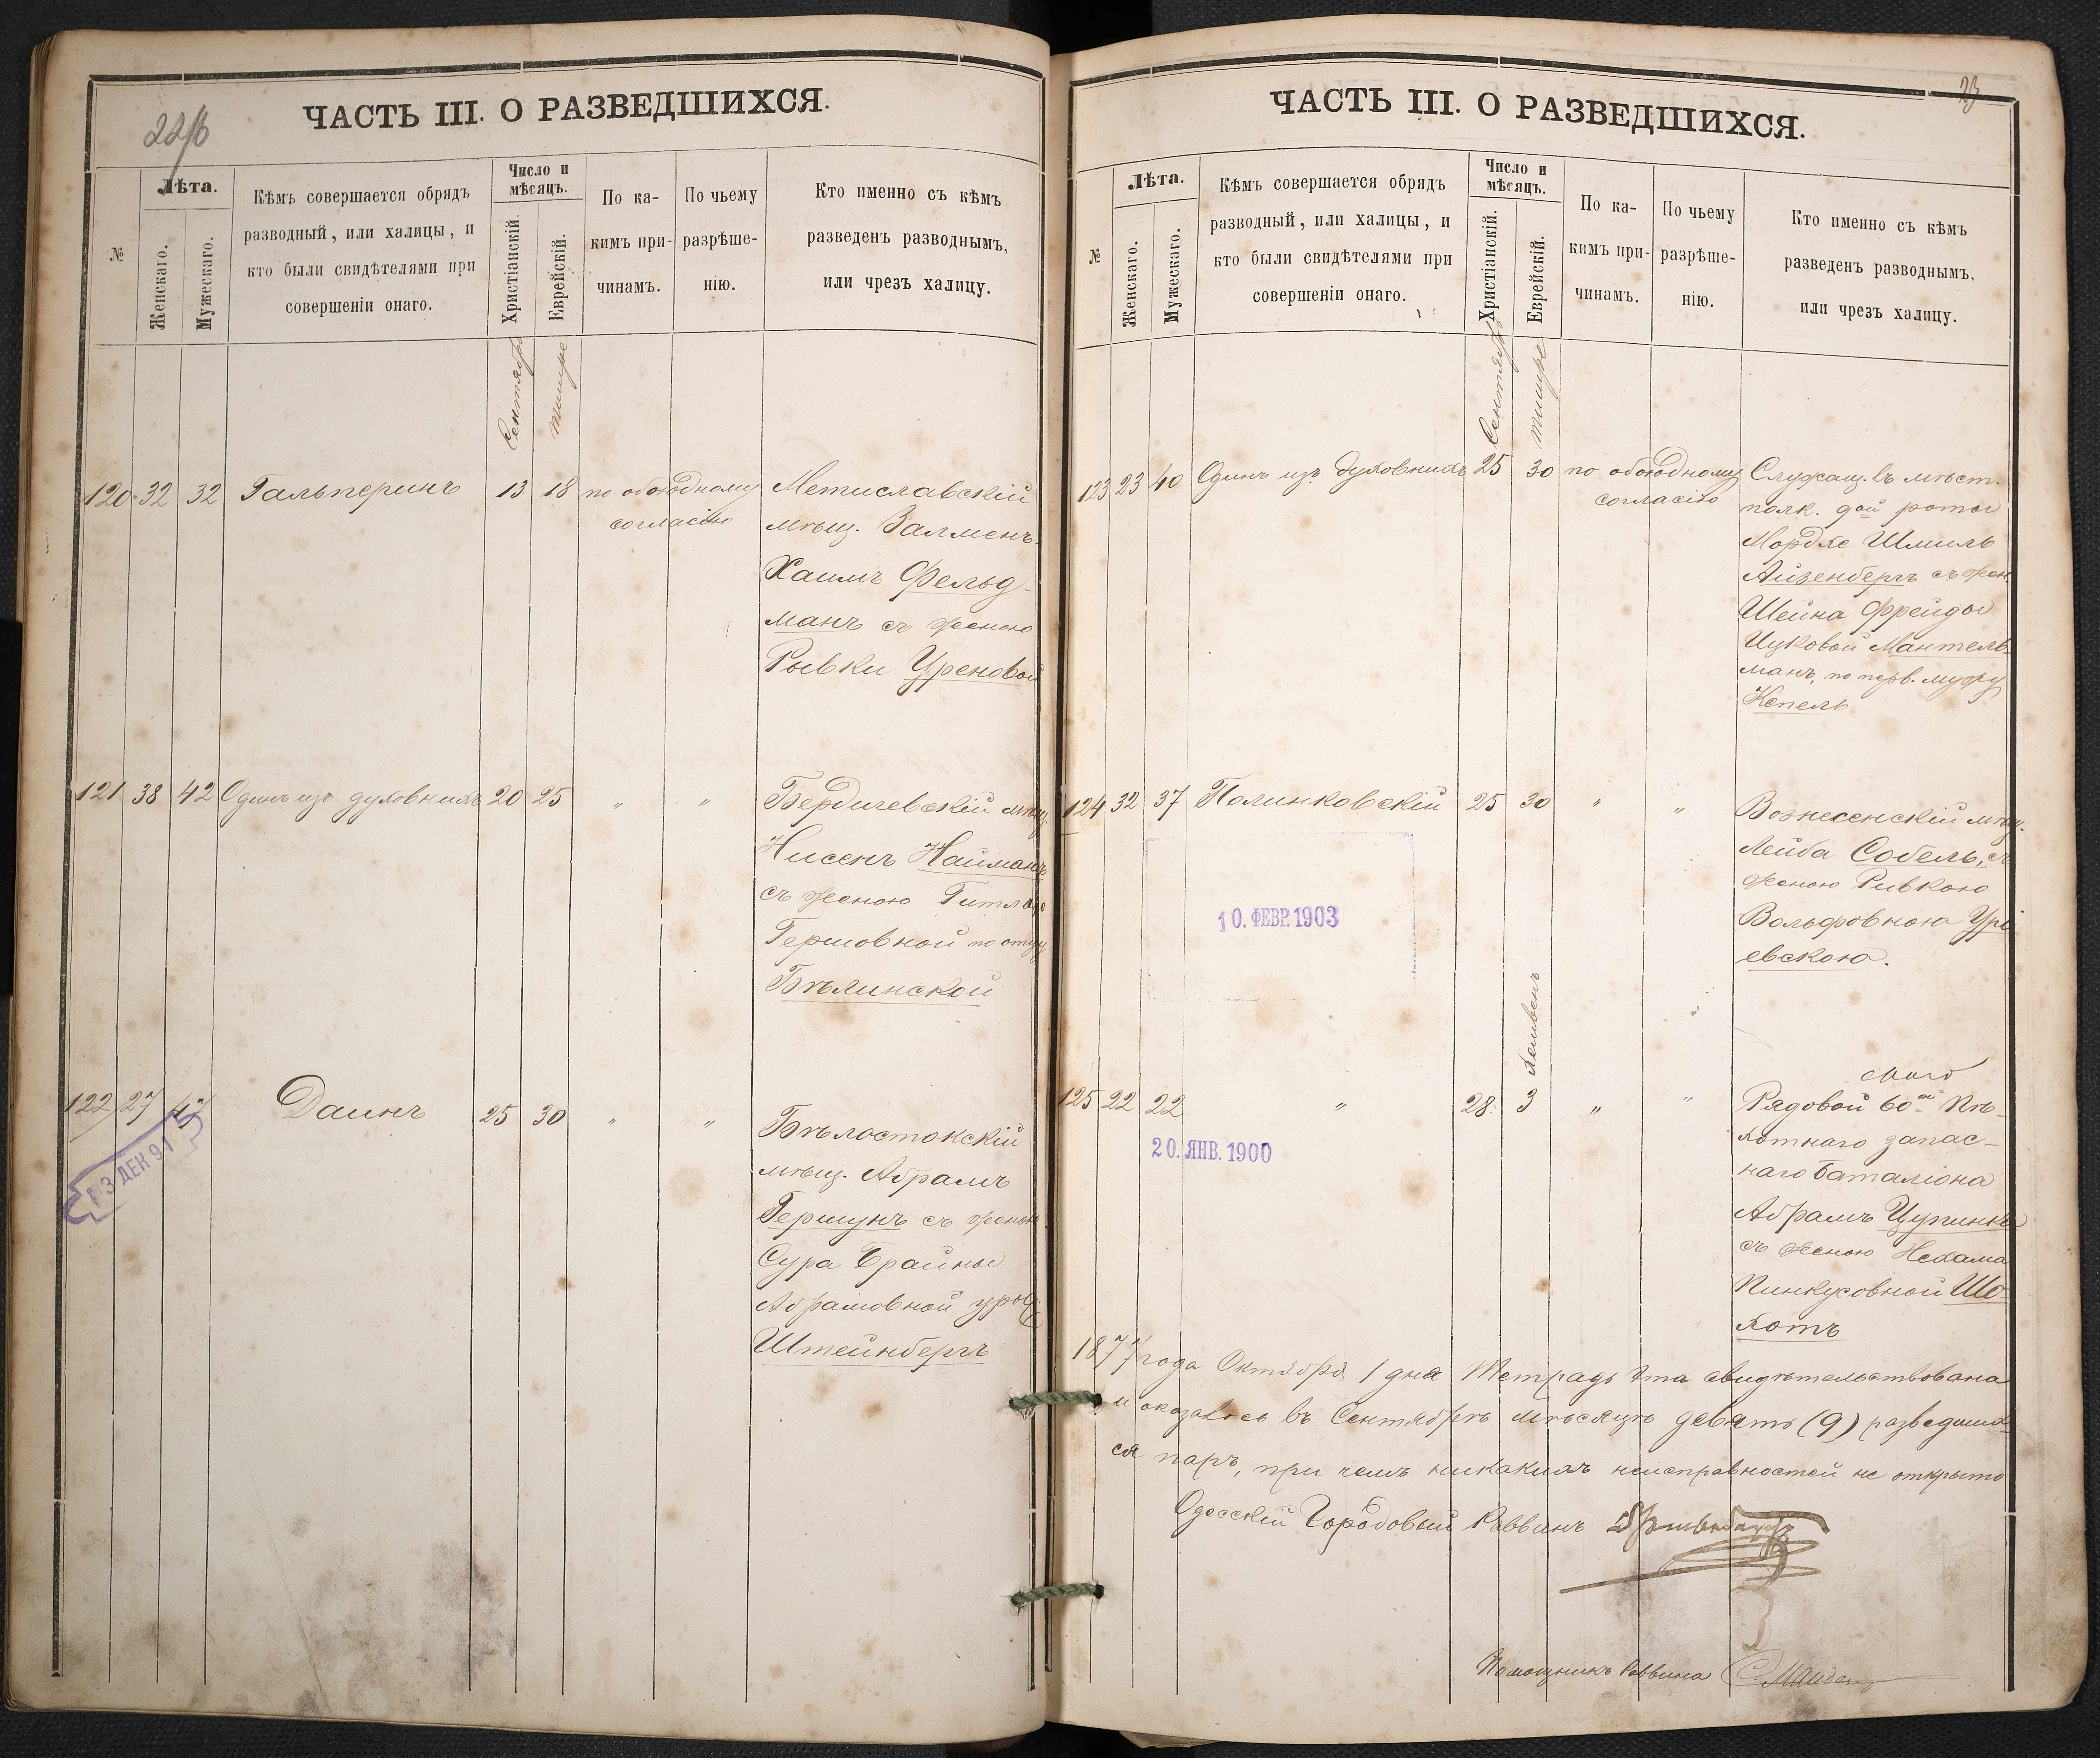 ЧАСТЬ III. О РАЗВЕДШИХСЯ.
№
Лѣта.
Женскаго.
Мужескаго.
Кѣмъ совершается обрядъ
разводный, или халицы, и
кто были свидѣтелями при
совершеніи онаго.
Число и
мѣсяцъ.
Христіанскій.
Еврейскій.
По ка-
кимъ при-
чинамъ.
По чьему
разрѣше-
нію.
Кто именно съ кѣмъ
разведенъ разводнымъ,
или чрезъ халицу.
Сентябрь
тишре
120 32 32 Гальперинъ 13 18 по обоюдному
согласію
Мстиславскій
мѣщ. Залменъ-
Хаимъ Фельд-
манъ съ женою
Рывки Цреновой
121 38 42 Одинъ изъ духовныхъ 20 25 " "
Бердичевскій мѣщ.
Нисенъ Найманъ
съ женою Гитлою
Гершовной по отцу
Бѣлинской
122 27 47 Даинъ 25 30 " "
Бѣлостокскій
мѣщ. Абрамъ
Гершунъ съ женою
Сура Брайны
Абрамовной урож.
Штейнбергъ
3 ДЕК 91
ЧАСТЬ III. О РАЗВЕДШИХСЯ.
23
№
Лѣта.
Женскаго.
Мужескаго.
Кѣмъ совершается обрядъ
разводный, или халицы, и
кто были свидѣтелями при
совершеніи онаго.
Число и
мѣсяцъ.
Христіанскій.
Еврейскій.
По ка-
кимъ при-
чинамъ.
По чьему
разрѣше-
нію.
Кто именно съ кѣмъ
разведенъ разводнымъ,
или чрезъ халицу.
Сентябрь
тишре
123 23 40 Одинъ изъ духовныхъ 25 30 по обоюдному
согласію
Служащ. въ мѣст.
полк. 9ой роты
Мордке Шмиль
Айзенбергъ съ жен.
Шейна Фрейды
Ицковой Мантель-
манъ, по перв. мужу
Кепель
124 32 37 Полинковскій 25 30 " "
Вознесенскій мѣщ.
Лейба Собель, съ
женою Ривкою
Вольфовною Ури
евскою.
10. ФЕВР. 1903
Хешвенъ
125 22 22 " 28 3 " "
Рядовой 60ой Пѣ-
хотнаго запас-
наго баталіона
Абрамъ Цупинкъ
съ женою Нехама
Пинкусовной Шо-
хотъ
20. ЯНВ. 1900
1877 года Октября 1 дня Тетрадь эта свидѣтельствована
и оказалось въ Сентябрѣ мѣсяцѣ девять (9) разведших-
ся паръ, при чемъ никакихъ неисправностей не открыто
Одесскій Городовый Раввинъ
Помощникъ Раввина